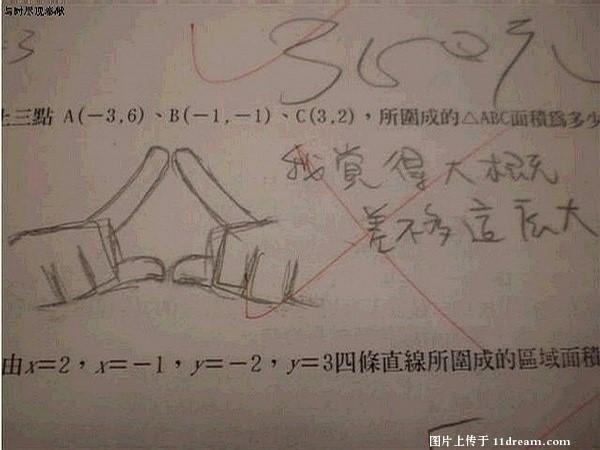 -3
3600元
上三點 A(-3,6)、B(-1,-1)、C(3,2)，所圍成的△ABC面積為多少
我覺得大概
差不多這麼大
由x=2，x=-1，y=-2，y=3四條直線所圍成的區域面積
图片上传于 11dream.com